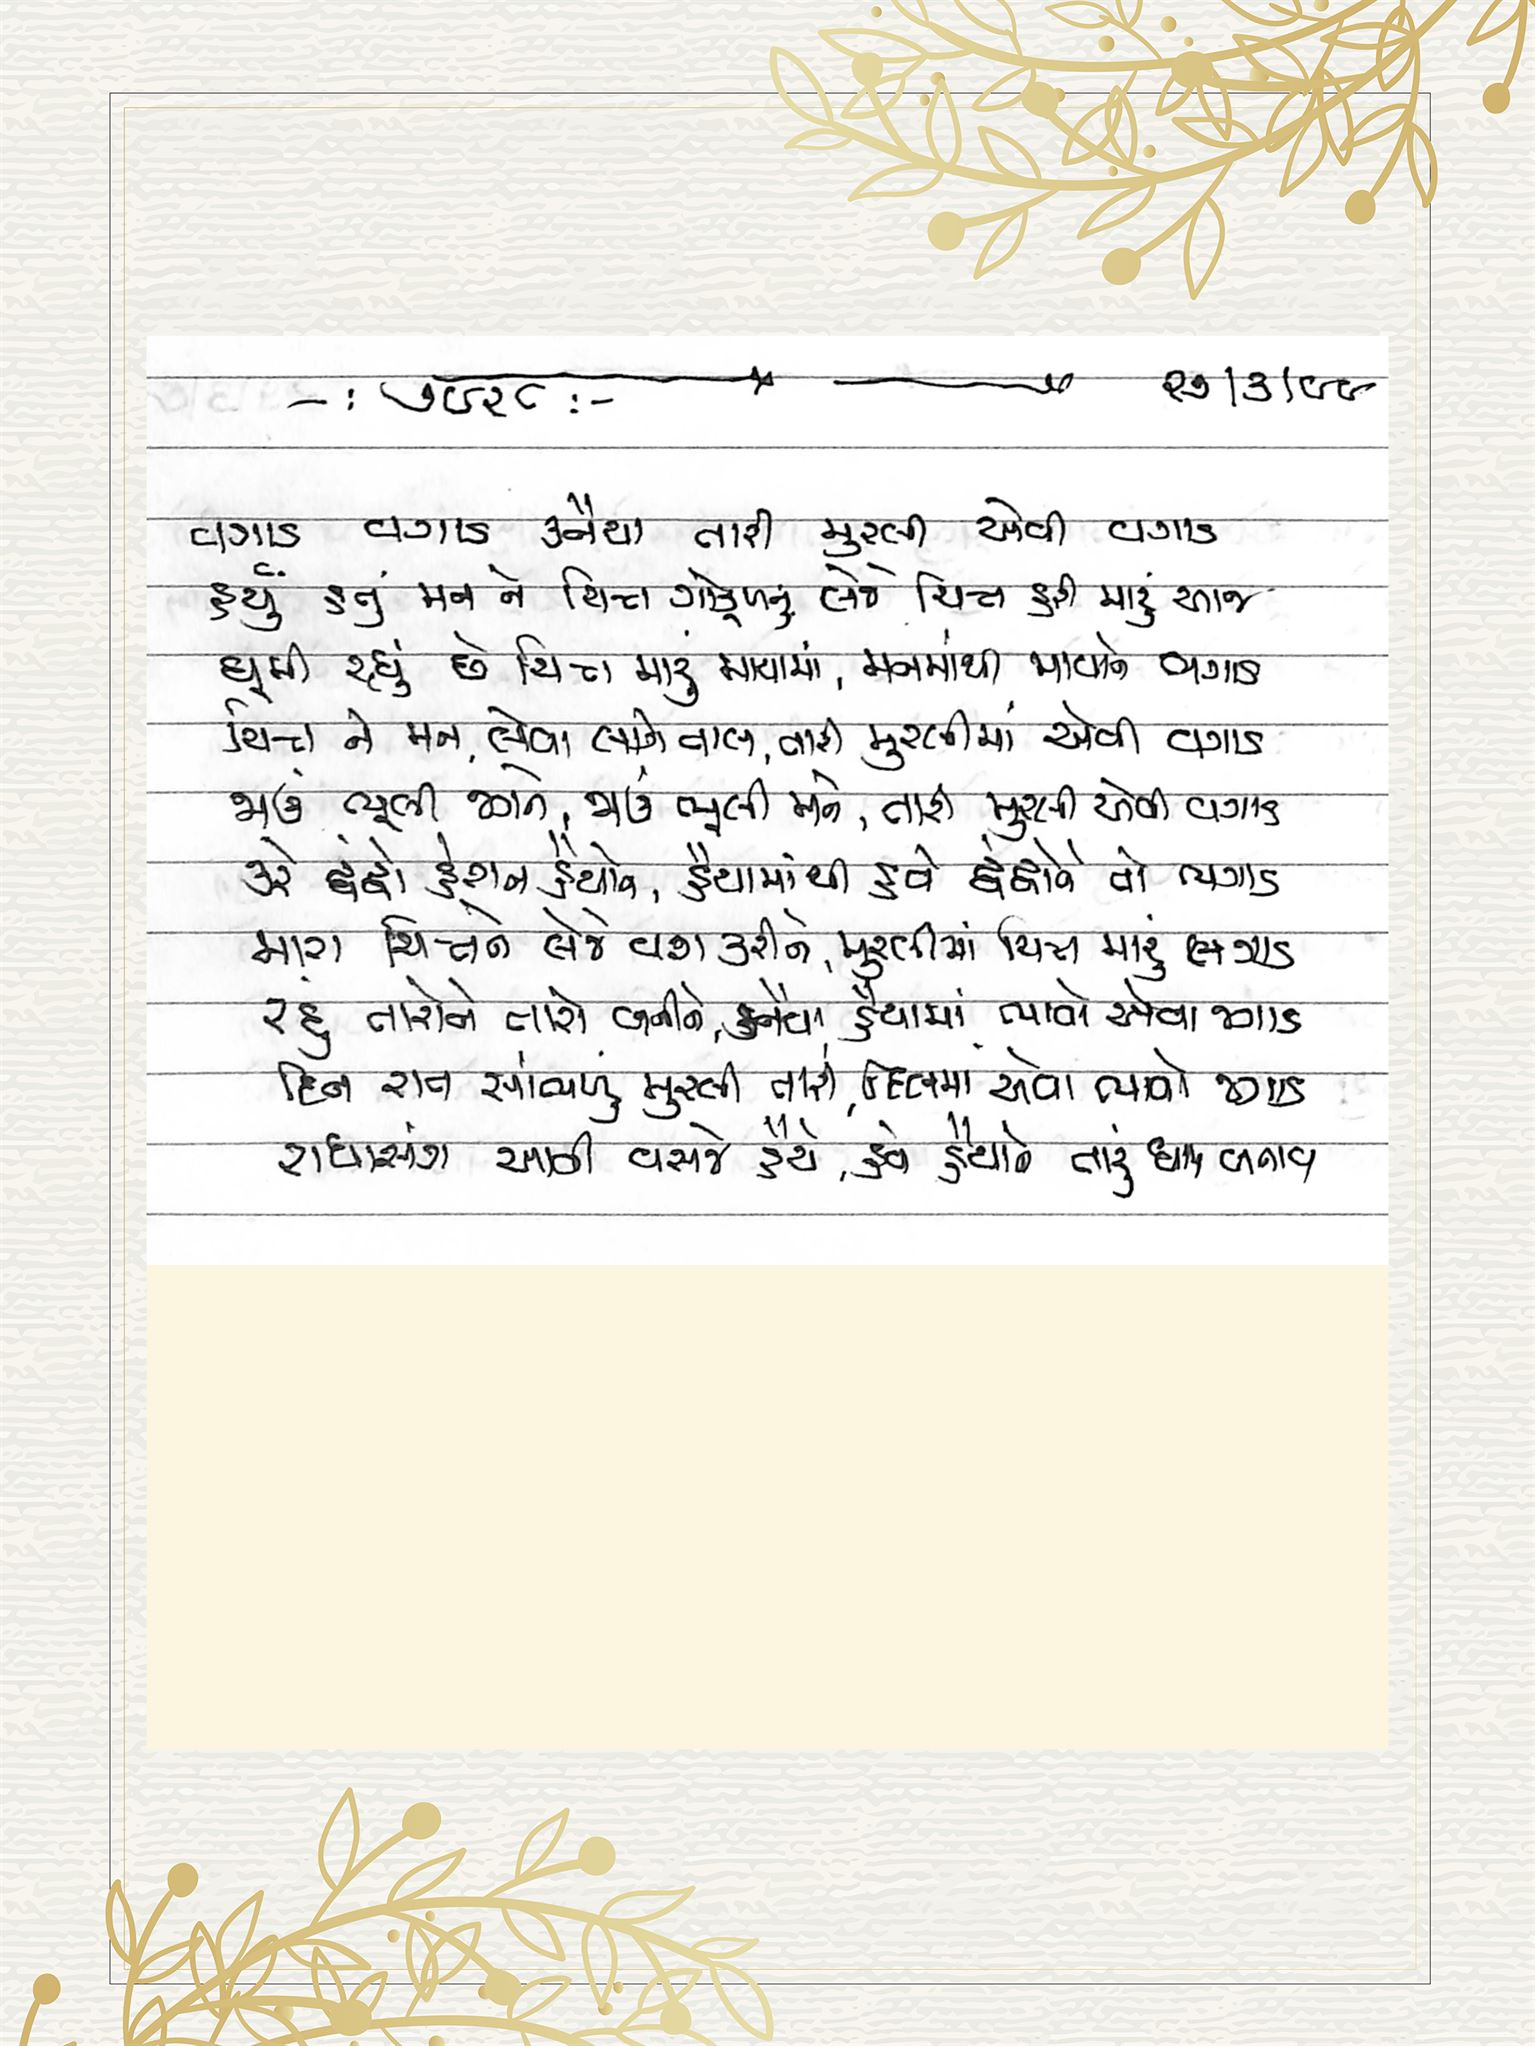 -: ૭૯૨૮ :- ૨૭/૩/૯૯
વગાડ વગાડ કનૈયા તારી મુરલી એવી વગાડ
હર્યું હતું મન ને ચિત્ત ગોકુળનું લેજે ચિત્ત હરી મારું આજ
ઘૂમી રહ્યું છે ચિત્ત મારું માયામાં, મનમાંથી માયાને ભગાડ
ચિત્ત ને મન, લેવા લાગે તાલ, તારી મુરલીમાં એવી વગાડ
જાઉં ભૂલી જગને, જાઉં ભૂલી મને, તારી મુરલી એવી વગાડ
કરે દ્વંદ્વો હેરાન હૈયાને, હૈયામાંથી હવે દ્વંદ્વોને તો ભગાડ
મારા ચિત્તને લેજે વશ કરીને, મુરલીમાં ચિત્ત મારું લગાડ
રહું તારોને તારો બનીને, કનૈયા હૈયામાં ભાવો એવા જગાડ
દિન રાત સાંભળું મુરલી તારી, દિલમાં એવા ભાવો જગાડ
રાધાસંગ આવી વસજે હૈયે, હવે હૈયાને તારું ધામ બનાવ